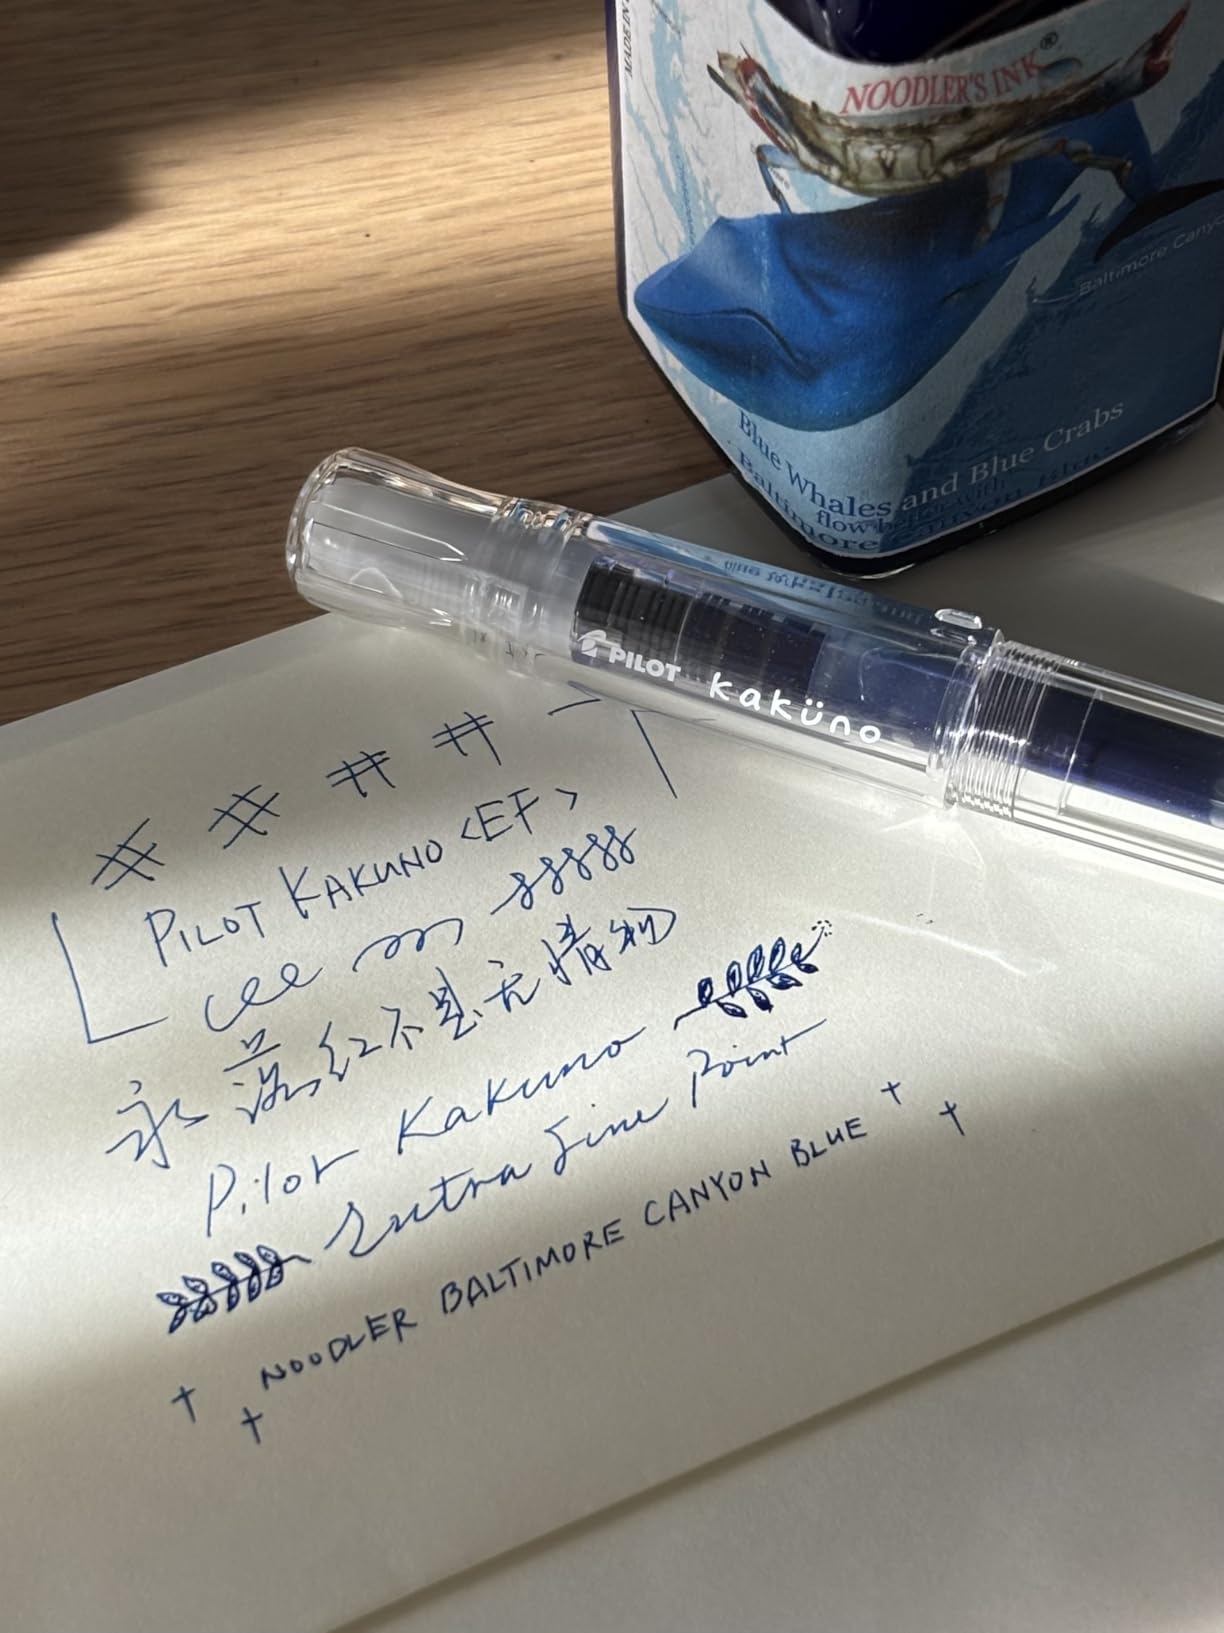 NOODLER'S INK®
Baltimore Cany
Blue Whales and Blue Crabs
flow
Baltimore Canyon Blue
PILOT kaküno
PILOT KAKUNO <EF>
永 落红不是无情物
Pilot Kakuno
Extra Fine Point
NOODLER BALTIMORE CANYON BLUE